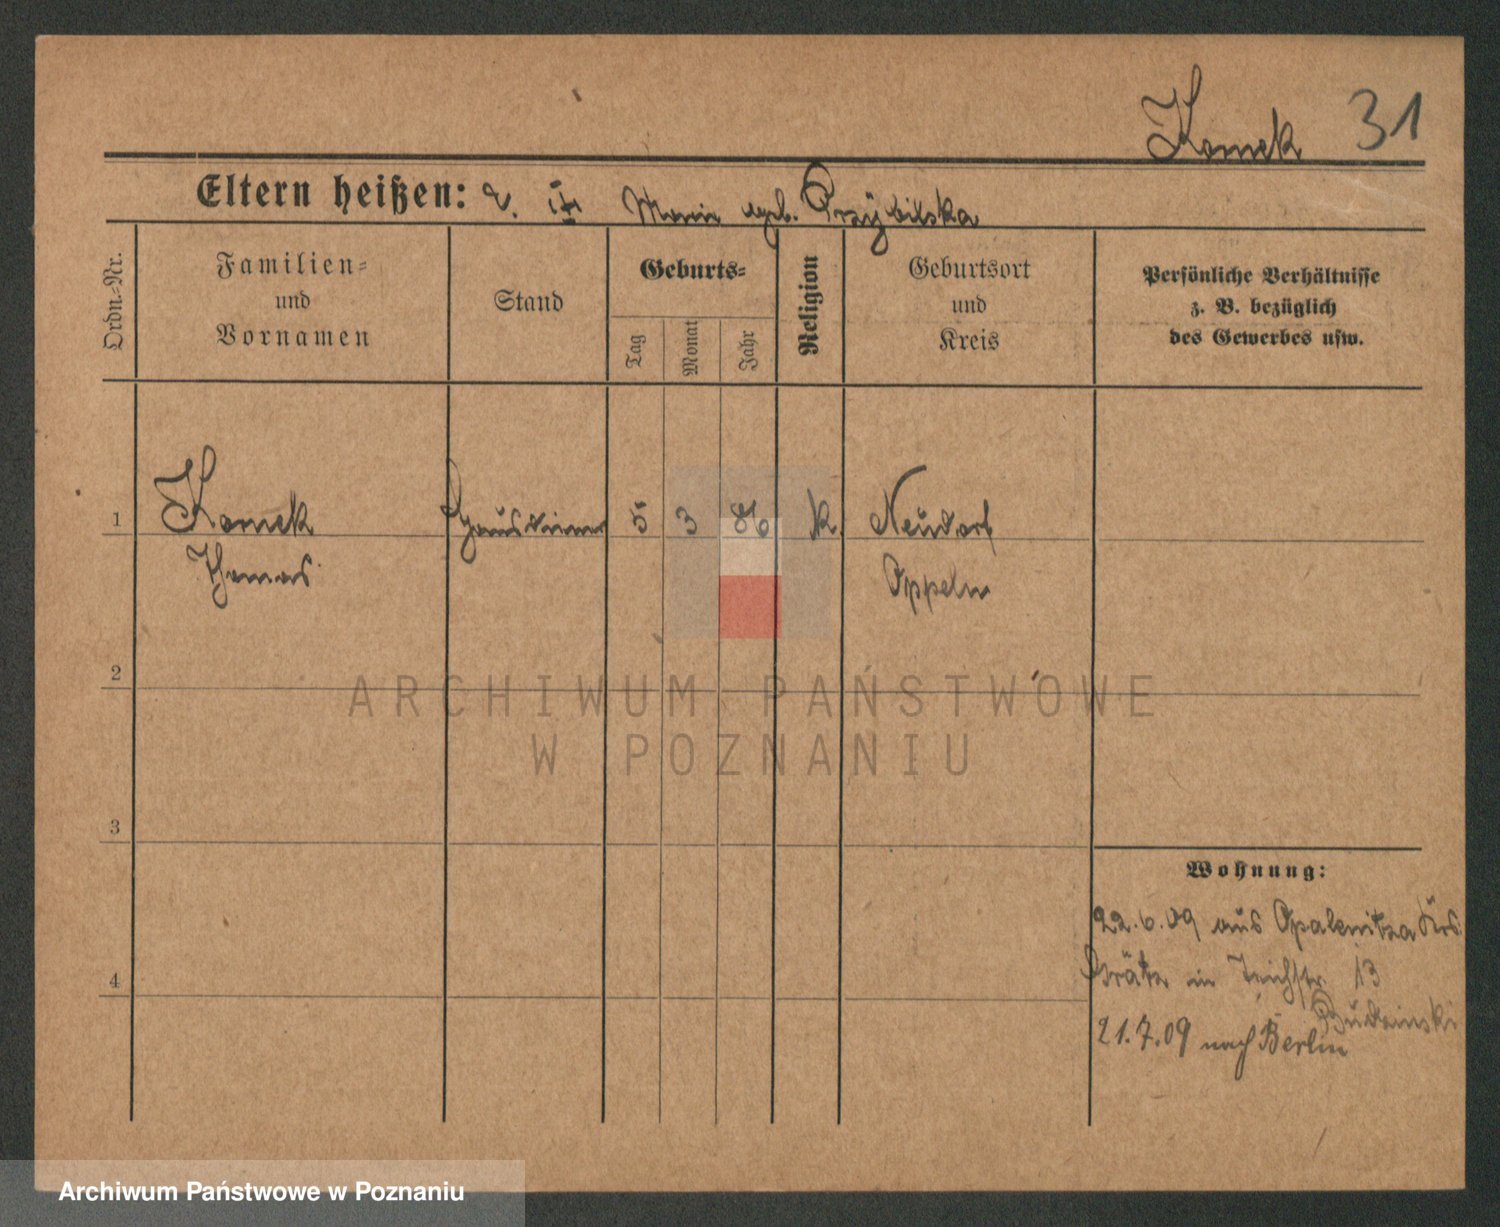 Komek 31
Eltern heißen: V. Marie geb. Przybilska
Ordn.-Nr.
Familien-
und
Vornamen
Stand
Geburts-
Tag
Monat
Jahr
Religion
Geburtsort
und
Kreis
Persönliche Verhältnisse
z. B. bezüglich
des Gewerbes usw.
1 Komek Hausdiener 5 3 86 k. Neudorf
Thomas Oppeln
2
3
4
Wohnung:
22.6.09 aus Opalenitza Krs.
Grätz in Teichstr. 13
21.7.09 nach Berlin
ARCHIWUM PAŃSTWOWE
W POZNANIU
Archiwum Państwowe w Poznaniu